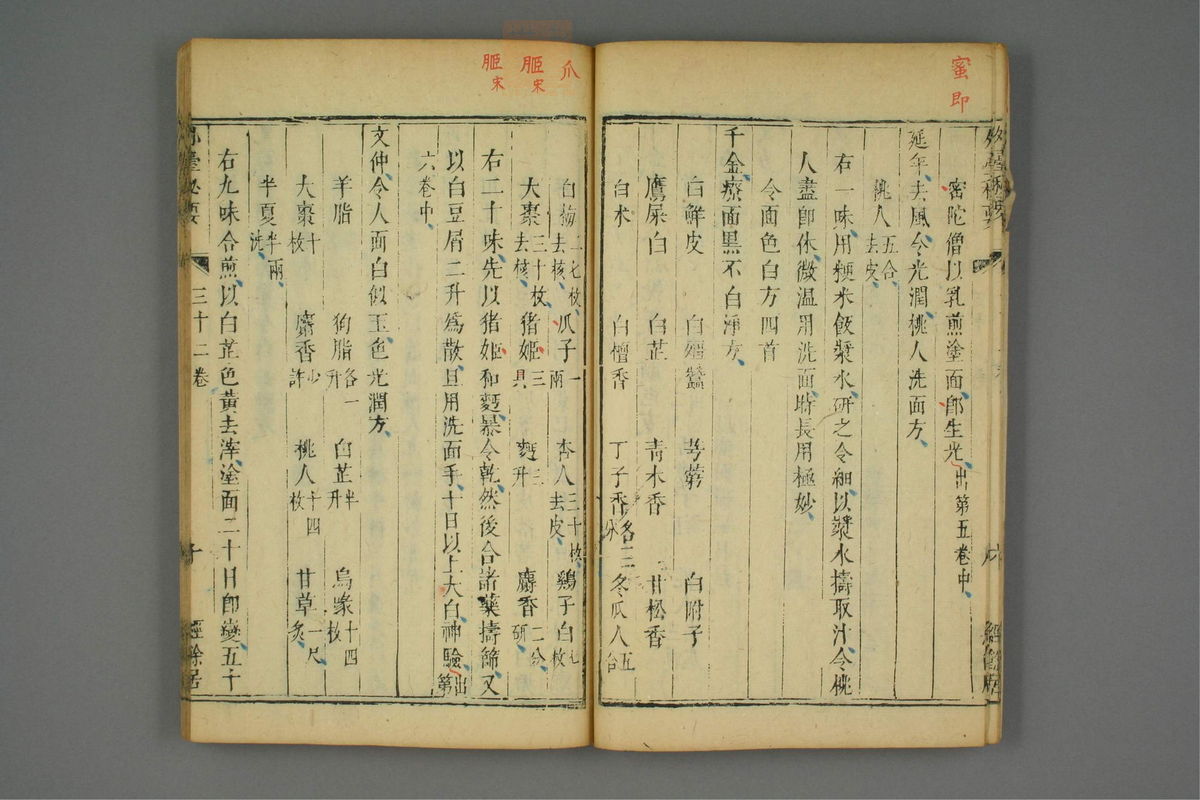 蜜即
密陀僧以乳煎塗面、即生光、出第五卷中、
延年、去風令光潤、桃人洗面方、
桃人五合去皮、
右一味、用粳米飯漿水研之令細、以漿水擣取汁、令桃
人盡即休、微溫用洗面、時長用極妙、
令面色白方四首
千金療面黑不白淨方、
白鮮皮 白殭蠶 芎藭 白附子
鷹屎白 白芷 青木香 甘松香
白术 白檀香 丁子香各三分 冬瓜人五合
爪
䐅宋
䐅宋
白梅二七枚去核、瓜子一兩 杏人三十枚去皮、雞子白七枚
大棗三十枚去核、猪䐅三具 麪三升 麝香二分研
右二十味、先以猪䐅和麪暴令乾、然後合諸藥擣篩、又
以白豆屑二升爲散、旦用洗面手、十日以上大白、神驗、出第
六卷中、
文仲、令人面白似玉、色光潤方、
羊脂 狗脂各一升 白芷半升 烏喙十四枚
大棗十枚 麝香少許 桃人十四枚 甘草一尺炙、
半夏半兩洗、
右九味合煎、以白芷色黃去滓、塗面二十日即變、五十
外臺秘要 三十二卷 經餘居